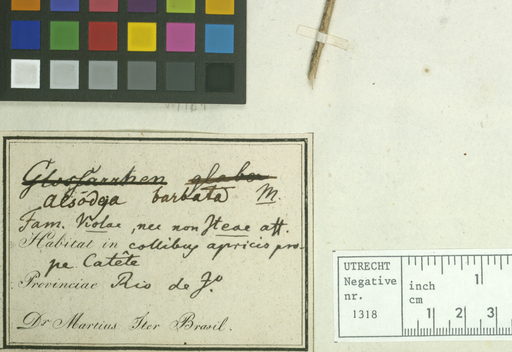 Glossarrhen glaber
Alsodeja barbata M.
Fam. Violae, nec non Iteae aff.
Habitat in collibus apricis pro-
pe Catête
Provinciae Rio de J.º
Dr Martius Iter Brasil.
UTRECHT
Negative
nr.
1318
inch
cm
1
1 2 3